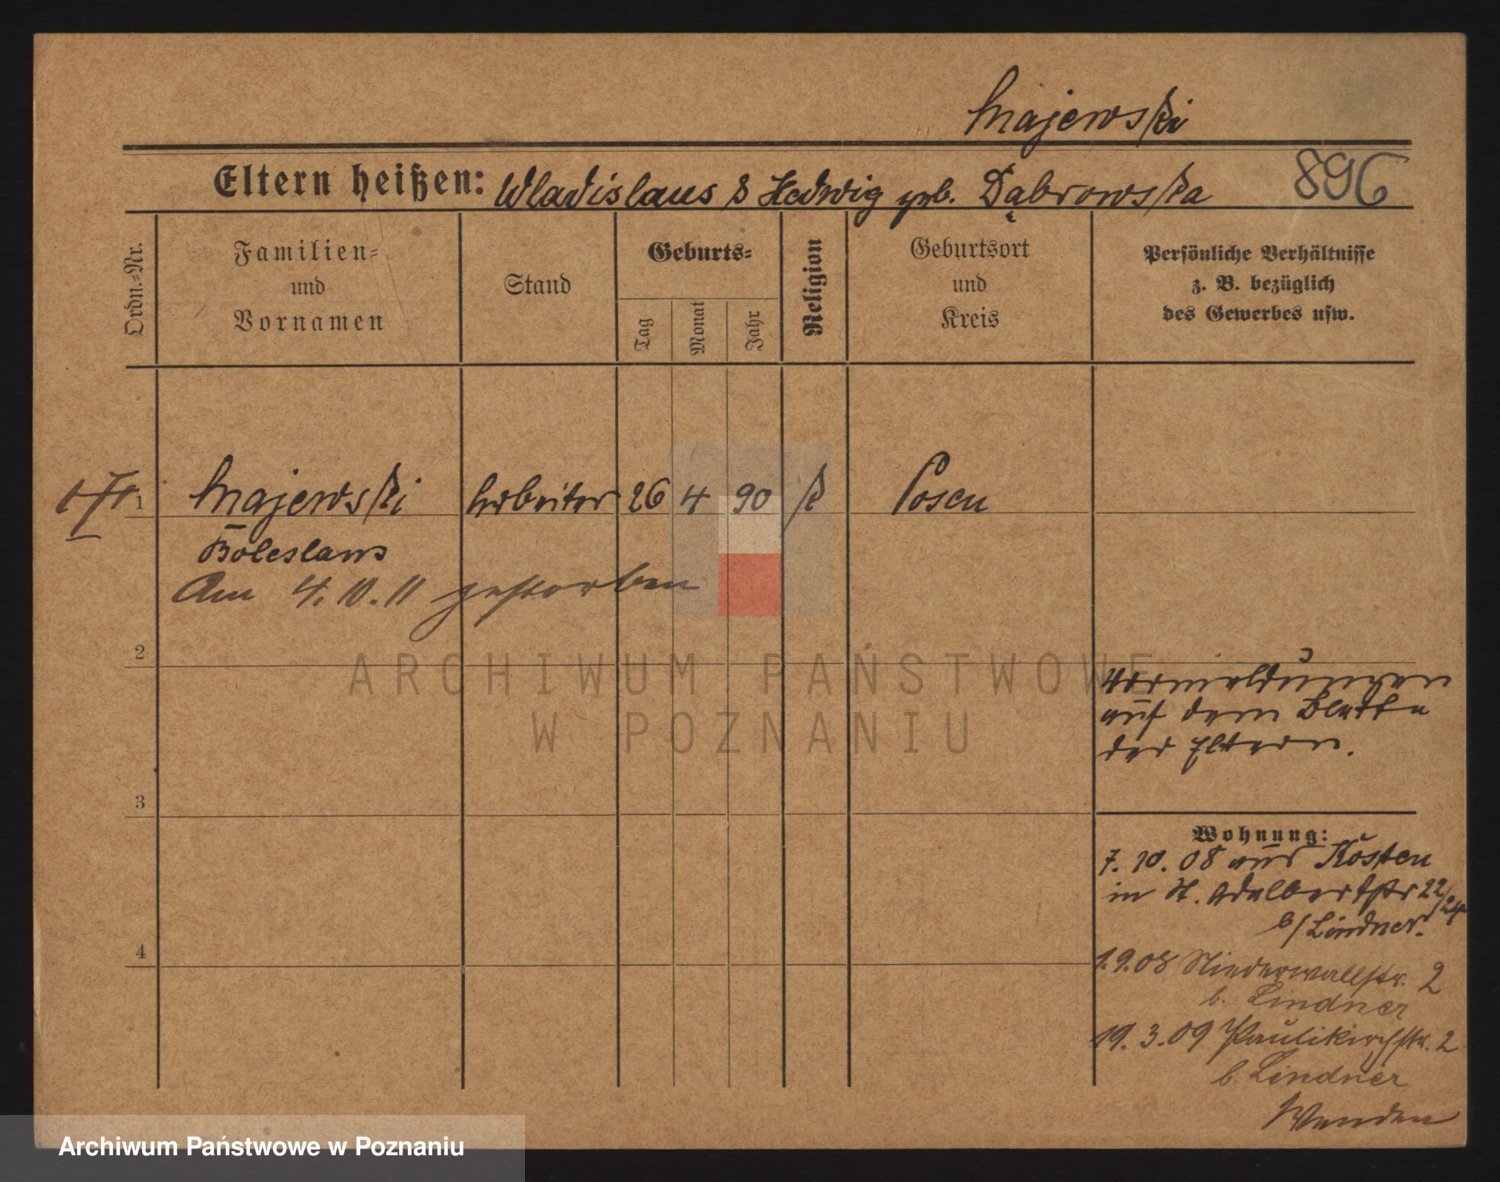 Majewski
Eltern heißen: Wladislaus & Hedwig geb. Dąbrowska 896
Ordn.=Nr.
Familien=
und
Vornamen
Stand
Geburts=
Tag
Monat
Jahr
Religion
Geburtsort
und
Kreis
Persönliche Verhältnisse
z. B. bezüglich
des Gewerbes usw.
1 Majewski Arbeiter 26 4 90 K Posen
Boleslaus
Am 4. 10. 11 gestorben
2
Vermeldungen
auf dem Blatte
der Eltern.
3
Wohnung:
7. 10. 08 aus Kosten
in St. Adalbertstr 22/24
b/ Lindner.
4
1.9.08 Niederwallstr. 2
b. Lindner
19. 3. 09 Paulikirchstr. 2
b. Lindner
Wenden
ARCHIWUM PAŃSTWOWE
W POZNANIU
Archiwum Państwowe w Poznaniu